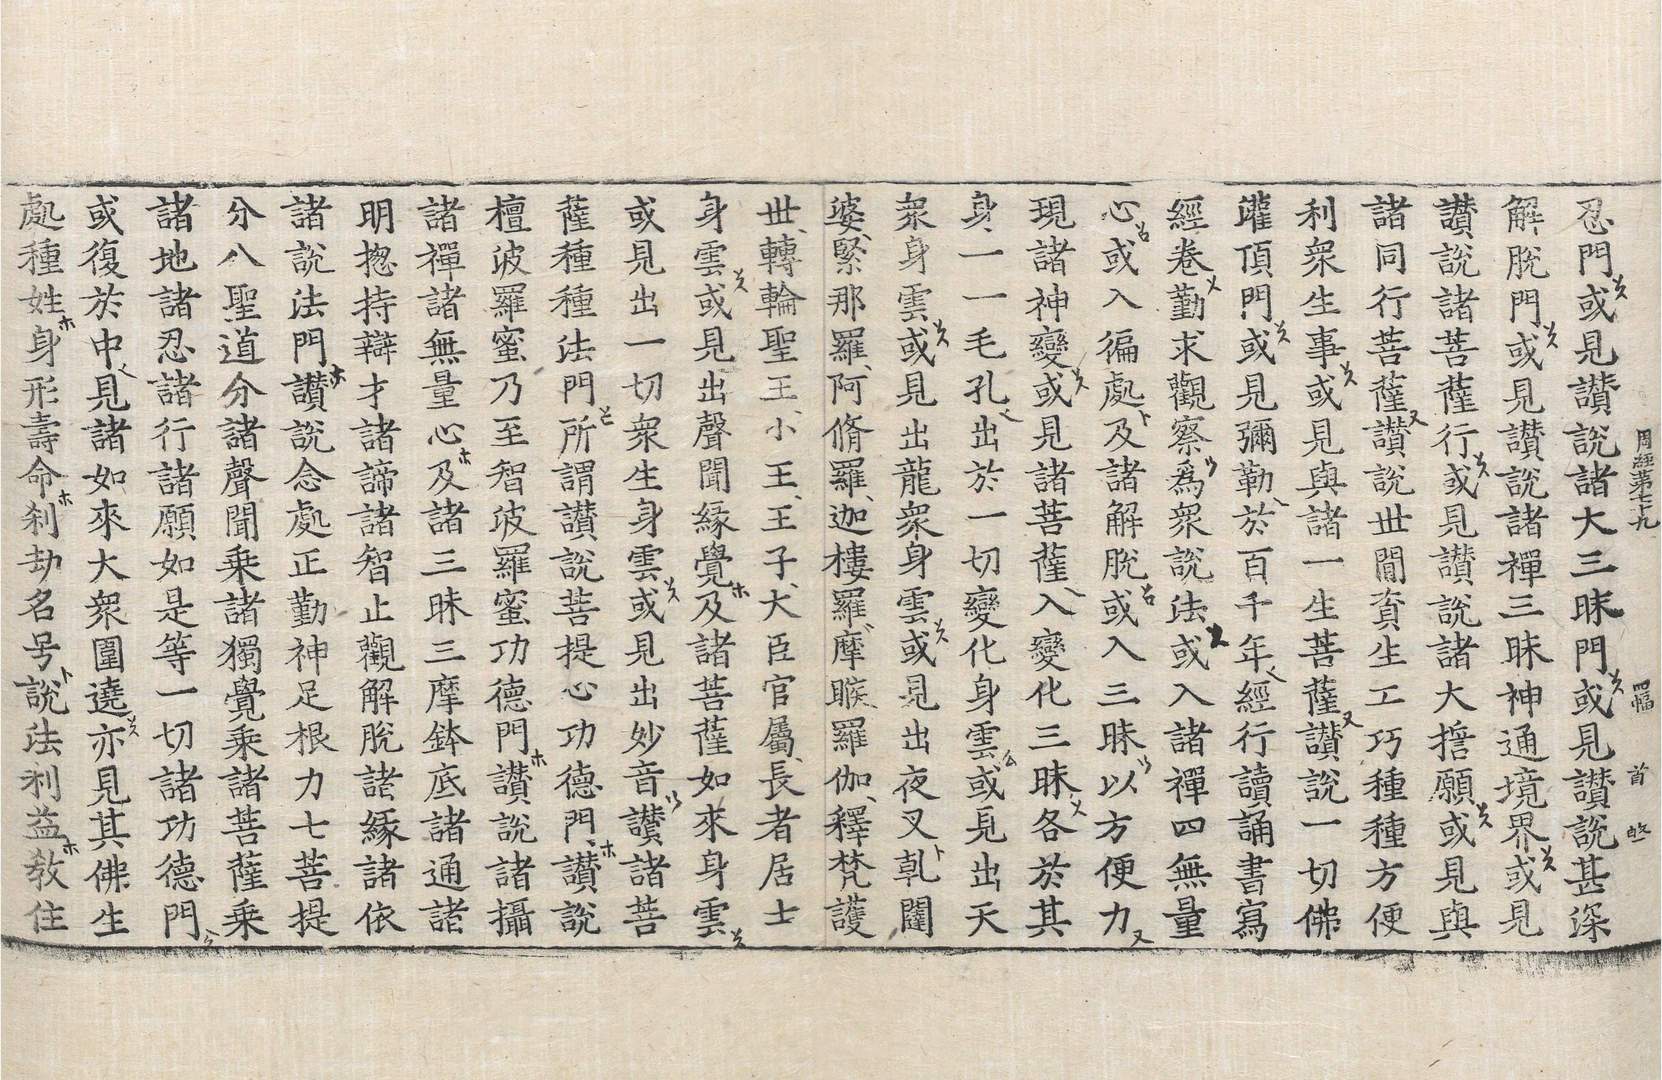 周經第七十九 四幅 首
忍門或見讃說諸大三昧門或見讃說甚深
解脫門或見讃說諸禪三昧神通境界或見
讃說諸菩薩行或見讃說諸大擔願或見與
諸同行菩薩讃說世閒資生工巧種種方便
利衆生事或見與諸一生菩薩讃說一切佛
灌頂門或見彌勒於百千年經行讀誦書寫
經卷勤求觀察爲衆說法或入諸禪四無量
心或入徧處及諸解脫或入三昧以方便力
現諸神變或見諸菩薩入變化三昧各於其
身一一毛孔出於一切變化身雲或見出天
衆身雲或見出龍衆身雲或見出夜叉乹闥
婆緊那羅阿脩羅迦樓羅摩睺羅伽釋梵護
世轉輪聖王小王王子大臣官屬長者居士
身雲或見出聲聞緣覺及諸菩薩如來身雲
或見出一切衆生身雲或見出妙音讃諸菩
薩種種法門所謂讃說菩提心功德門讃說
檀波羅蜜乃至智波羅蜜功德門讃說諸攝
諸禪諸無量心及諸三昧三摩鉢底諸通諸
明揔持辯才諸諦諸智止觀解脫諸緣諸依
諸說法門讃說念處正勤神足根力七菩提
分八聖道分諸聲聞乘諸獨覺乘諸菩薩乘
諸地諸忍諸行諸願如是等一切諸功德門
或復於中見諸如來大衆圍遶亦見其佛生
處種姓身形壽命刹劫名号說法利益教住